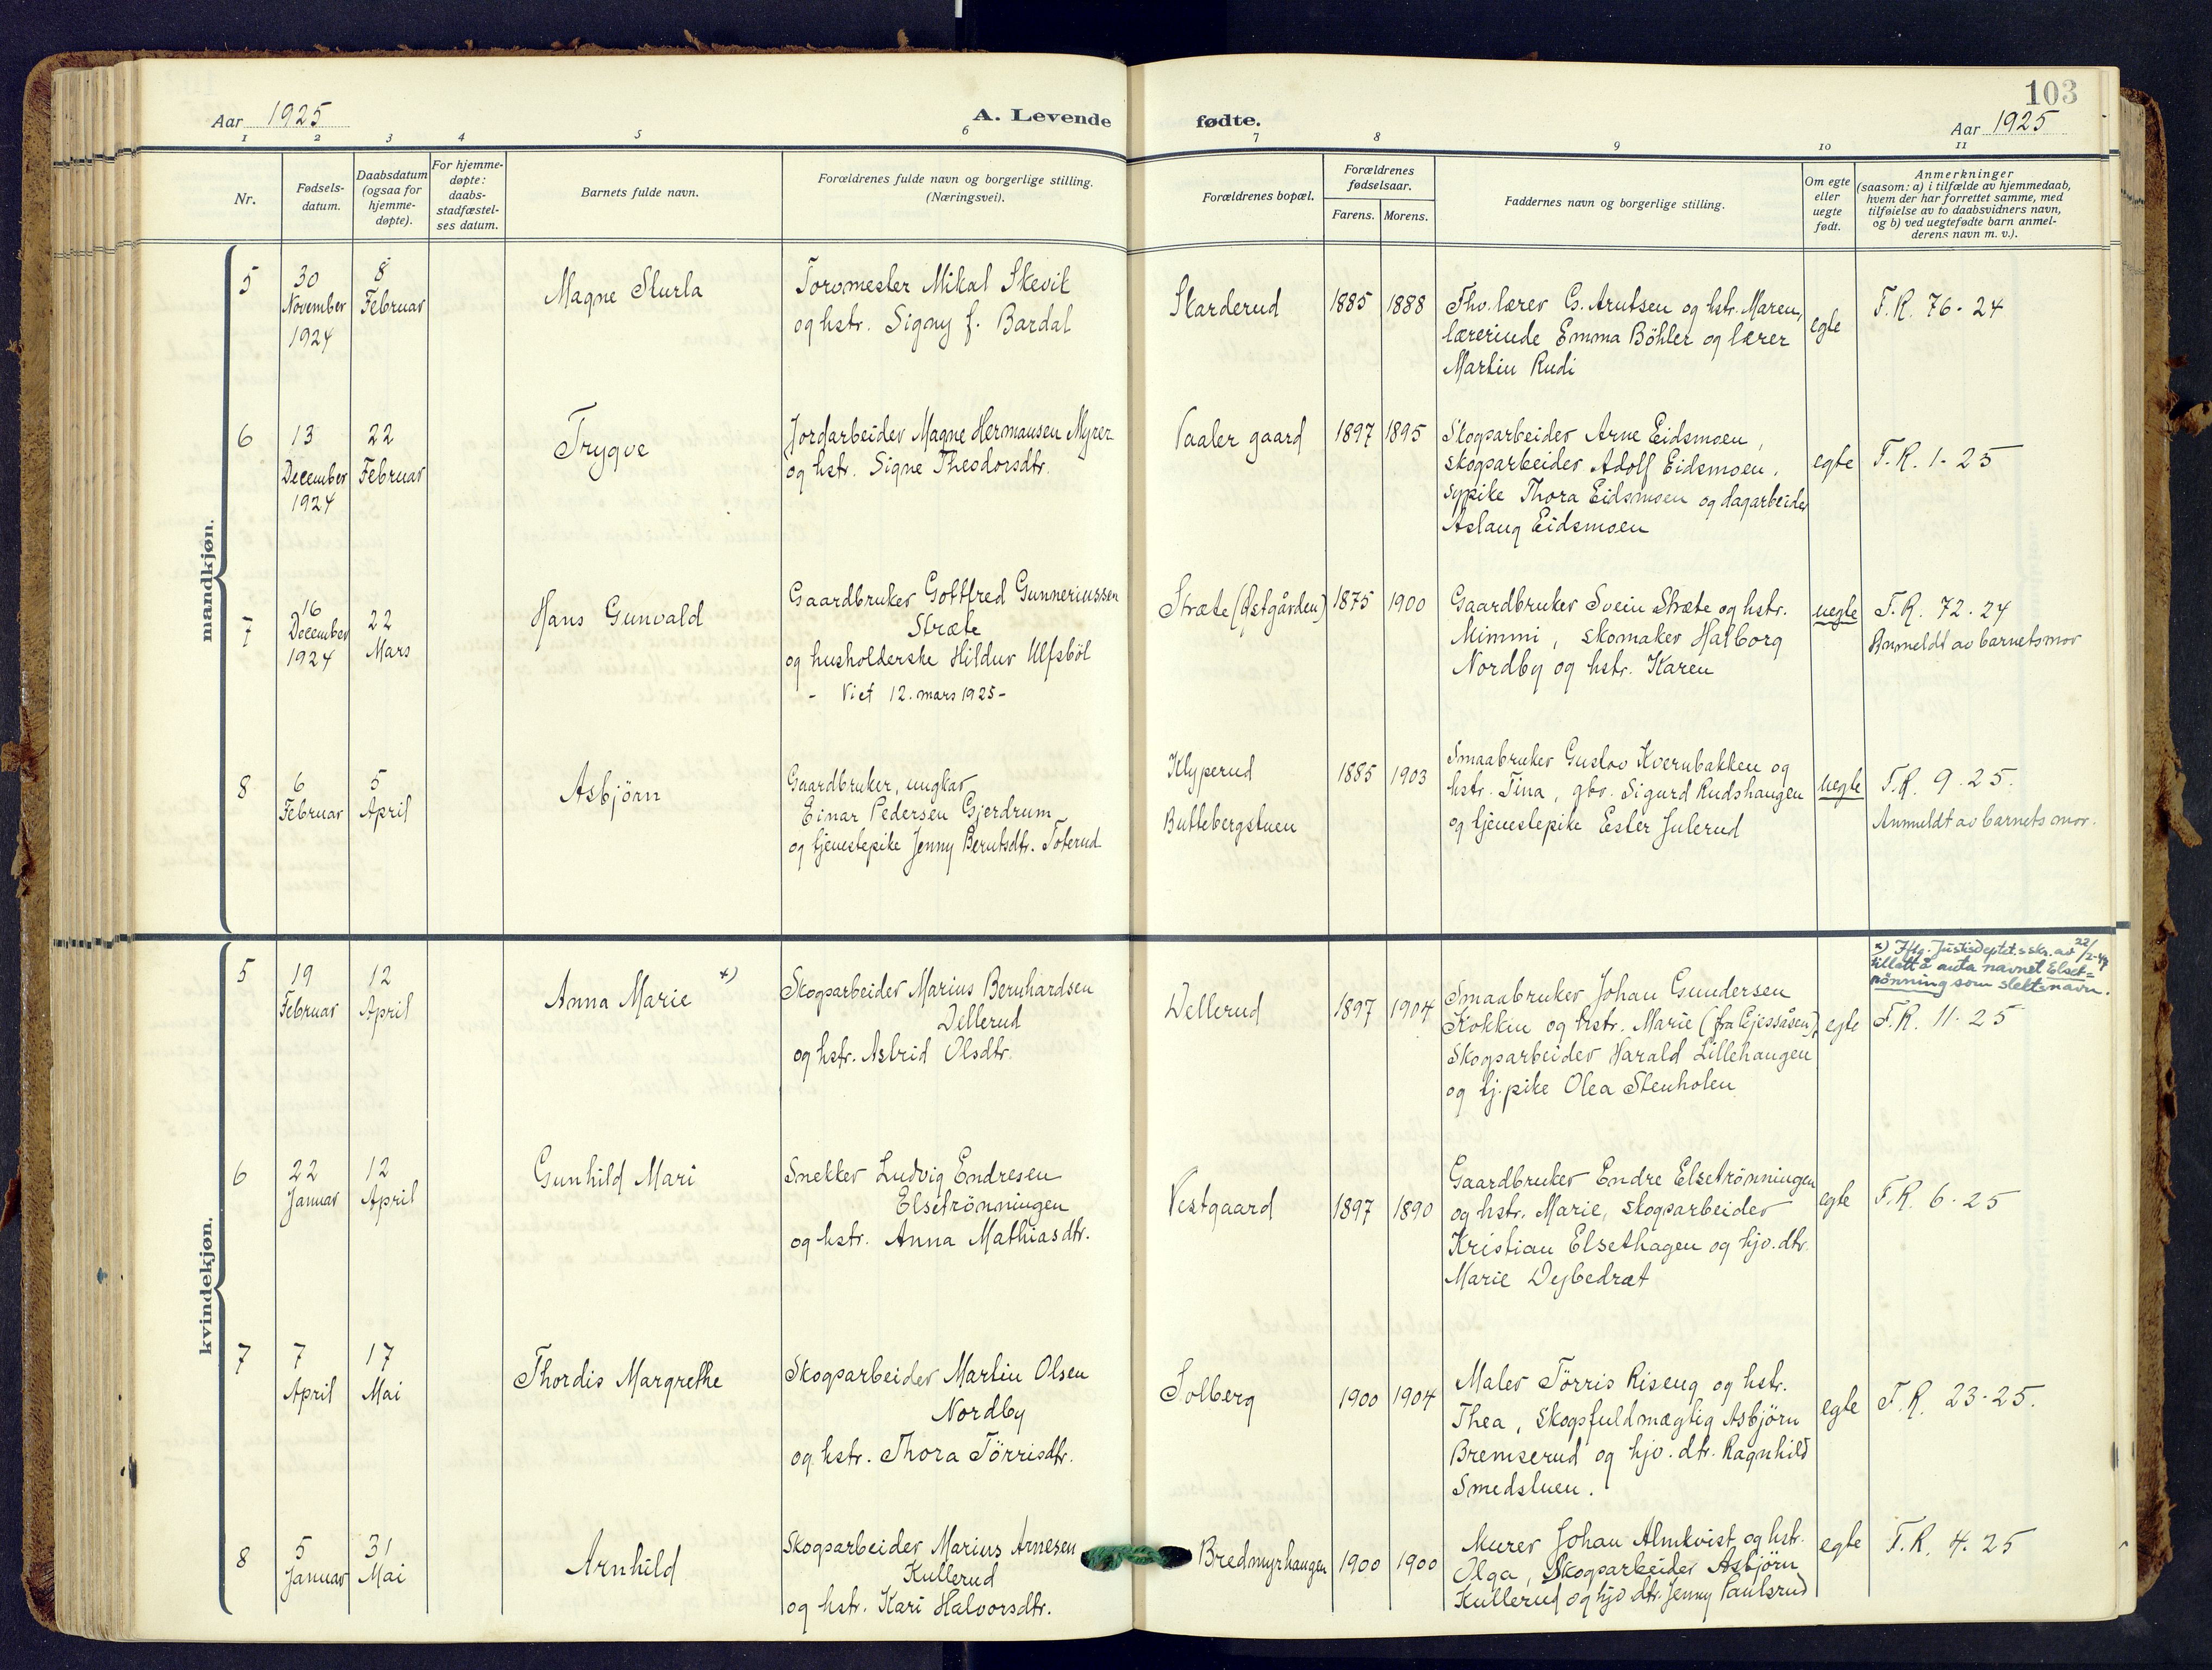 103
Aar 1925
A. Levende
fødte.
Aar 1925
1 2 3 4 5 6 7 8 9 10 11
Nr.
Fødsels-
datum.
Daabsdatum
(ogsaa for
hjemme-
døpte).
For hjemme-
døpte:
daabs-
stadfæstel-
ses datum.
Barnets fulde navn.
Forældrenes fulde navn og borgerlige stilling.
(Næringsvei).
Forældrenes bopæl.
Forældrenes
fødselsaar.
Farens. Morens.
Faddernes navn og borgerlige stilling.
Om egte
eller
uegte
født.
Anmerkninger
(saasom: a) i tilfælde av hjemmedaab,
hvem der har forrettet samme, med
tilføielse av to daabsvidners navn,
og b) ved uegtefødte barn anmel-
derens navn m. v.).
mandkjøn.
5
30
November
1924
8
Februar
Magne Sturla
Torvmester Mikal Skevik
og hstr. Signy f. Bardal
Skarderud
1885
1888
Thv. lærer G. Arntsen og hstr. Maren,
lærerinde Emma Böhler og lærer
Martin Rudi
egte
F.R. 76-24
6
13
December
1924
22
Februar
Trygve
Jordarbeider Magne Hermansen Myrer
og hstr. Signe Theodorsdtr.
Vaaler gaard
1897
1895
Skogsarbeider Arne Eidsmoen,
skogsarbeider Adolf Eidsmoen,
sypike Thora Eidsmoen og dagarbeider
Aslaug Eidsmoen
egte
F.R. 1-25
7
16
December
1924
22
Mars
Hans Gunvald
Gaardbruker Gottfred Gunneriussen
Stræte
og husholderske Hildur Ulfsböl
- Viet 12. mars 1925 -
Stræte (Østgården)
1875
1900
Gaardbruker Svein Stræte og hstr.
Mimmi, skomaker Halborg
Nordby og hstr. Karen
uegte
F.R. 72-24
Anmeldt av barnets mor
8
6
Februar
5
April
Asbjörn
Gaardbruker, ungkar
Einar Pedersen Gjerdrum
og tjenestepike Jenny Berntsdtr. Toterud
Klyperud
Buttebergstuen
1885
1903
Smaabruker Gustav Kvernbakken og
hstr. Tina, gbr. Sigurd Rudshaugen
og tjenestepike Ester Julerud
uegte
F.R. 9-25.
Anmeldt av barnets mor.
kvindekjøn.
5
19
Februar
12
April
Anna Marie x)
Skogsarbeider Marius Bernhardsen
Dellerud
og hstr. Astrid Olsdtr.
Dellerud
1897
1904
Smaabruker Johan Gundersen
Kokkin og hstr. Marie (fra Gjessåsen),
Skogsarbeider Harald Lillehaugen
og tj.pike Olea Stenholen
egte
x) Iflg. Justisdeptets skr. av 22/2-47
tillatt å anta navnet Elset-
rönning som slektsnavn.
F.R. 11-25
6
22
Januar
12
April
Gunhild Mari
Snekker Ludvig Endresen
Elsetrønningen
og hstr. Anna Mathiasdtr.
Vestgaard
1897
1890
Gaardbruker Endre Elsetrønningen
og hstr. Marie, skogsarbeider
Kristian Elsethagen og hjv. dtr.
Marie
egte
F.R. 6-25
7
7
April
17
Mai
Thordis Margrethe
Skogsarbeider Martin Olsen
Nordby
og hstr. Thora Tørrisdtr.
Solberg
1900
1904
Maler Tørris Riseng og hstr.
Thea, Skogsfuldmægtig Asbjörn
Bremserud og hjv. dtr. Ragnhild
Smedstuen.
egte
F.R. 23-25.
8
5
Januar
31
Mai
Arnhild
Skogsarbeider Marius Arnesen
Kullerud
og hstr. Kari Halvorsdtr.
Bredmyrhaugen
1900
1900
Murer Johan Almkvist og hstr.
Olga, Skogsarbeider Asbjörn
Kullerud og hjv dtr. Jenny Paulsrud
egte
F.R. 4-25